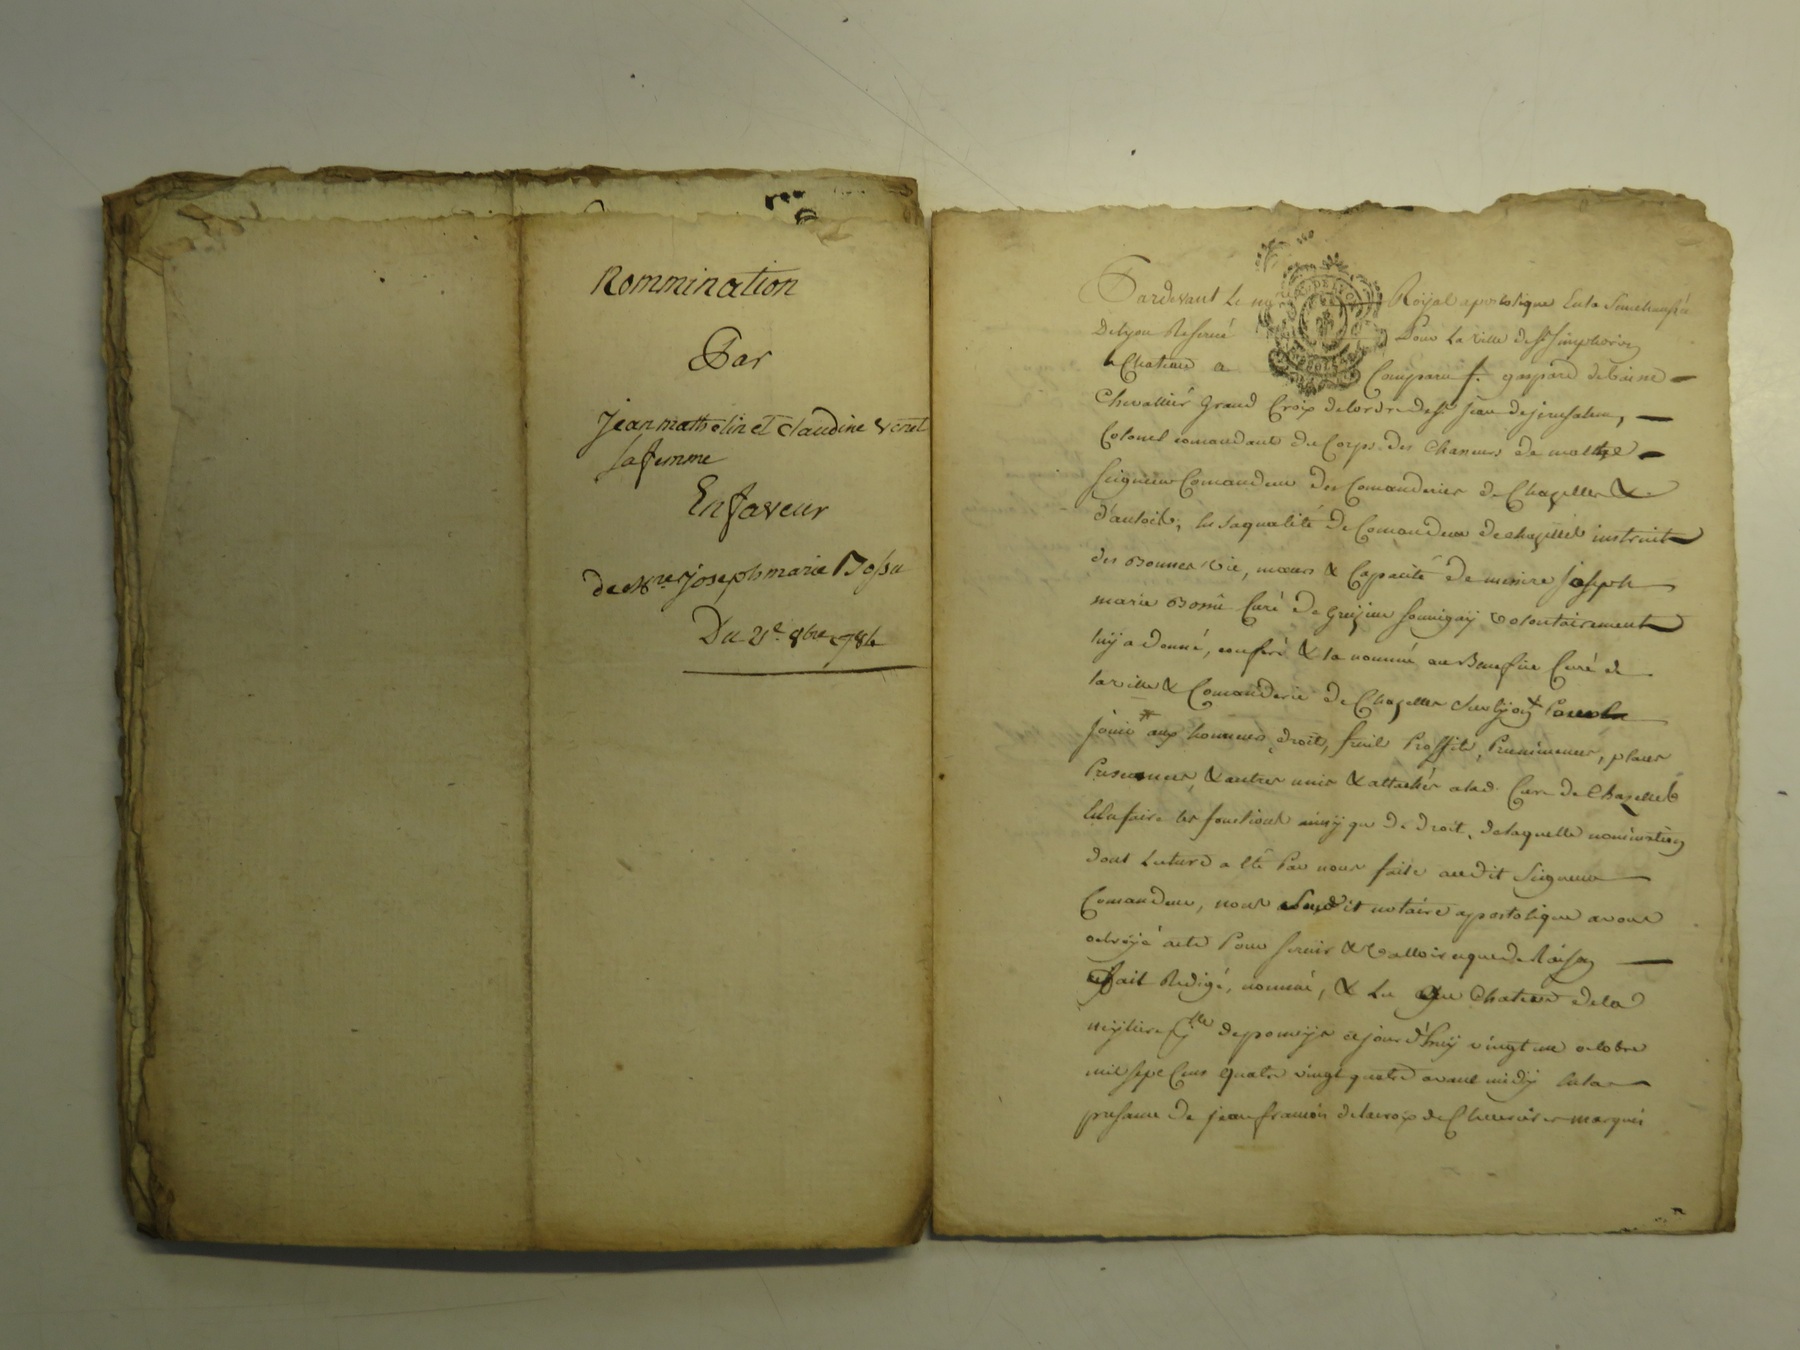 Nommination
Par
jean mathelin et Claudine
sa femme
En faveur
de Mre joseph marie Bossu
Du 21e 8bre 1784
Pardevant le no Royal apostolique en la Senechaussée
De lyon Reservé Pour la ville de st simphorien
le Chateau a Comparu f. gaspard de
Chevallier grand Croix de lordre de st jean de jerusalem,
Colonel comandant du Corps des Chasseurs de malthe
seigneur Comandeur des Comanderies de Chazelles &
en saqualité de Comandeur de chazelles instruit
des Bonnes vie, mœurs & Capacité de messire joseph
marie Bossu Curé de volontairement
luy a donné, conferé & la nommé au Benefice Curé de
la ville & Comanderie de Chazelles sur lyon Pour
jouir aux honneurs, droit, fruit Proffits, Preeminences, places
& autres unis & attachés a lad. Cure de Chazelles
les fonctions ainsy que de droit, delaquelle nomination
dont lecture a eté Par nous faite audit seigneur
Comandeur, nous susdit notaire apostolique avons
octroyé acte Pour servir & valloir ceque de Raison
fait Redigé, nommé, & lu au chateau de la
depomeys cejourd'huy vingt un octobre
mil sept Cens quatre vingt quatre avant midy en la
presence de jean françois delacroix de marquis